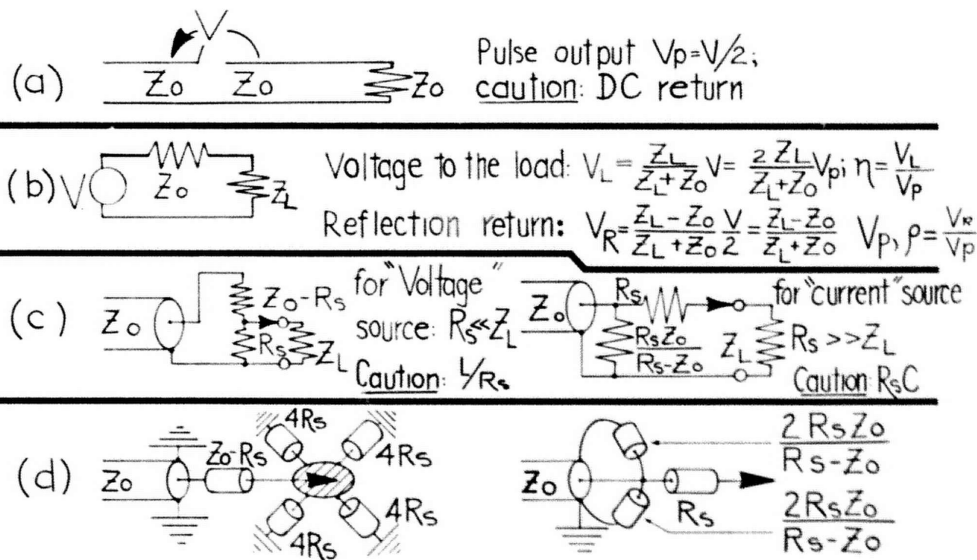 (a)
V
Zo Zo Zo
Pulse output Vp=V/2;
caution: DC return
(b)
V Zo ZL
Voltage to the load: VL = ZL/(ZL+Zo) V = 2ZL/(ZL+Zo) Vp; η = VL/Vp
Reflection return: VR = (ZL-Zo)/(ZL+Zo) V/2 = (ZL-Zo)/(ZL+Zo) Vp, ρ = VR/Vp
(c)
Zo Zo-Rs Rs ZL
for "Voltage"
source: Rs≪ZL
Caution: L/Rs
Zo Rs RsZo/(Rs-Zo) ZL
for "current" source
Rs >> ZL
Caution: RsC
(d)
Zo Zo-Rs 4Rs 4Rs 4Rs 4Rs
Zo Rs
2RsZo/(Rs-Zo)
2RsZo/(Rs-Zo)